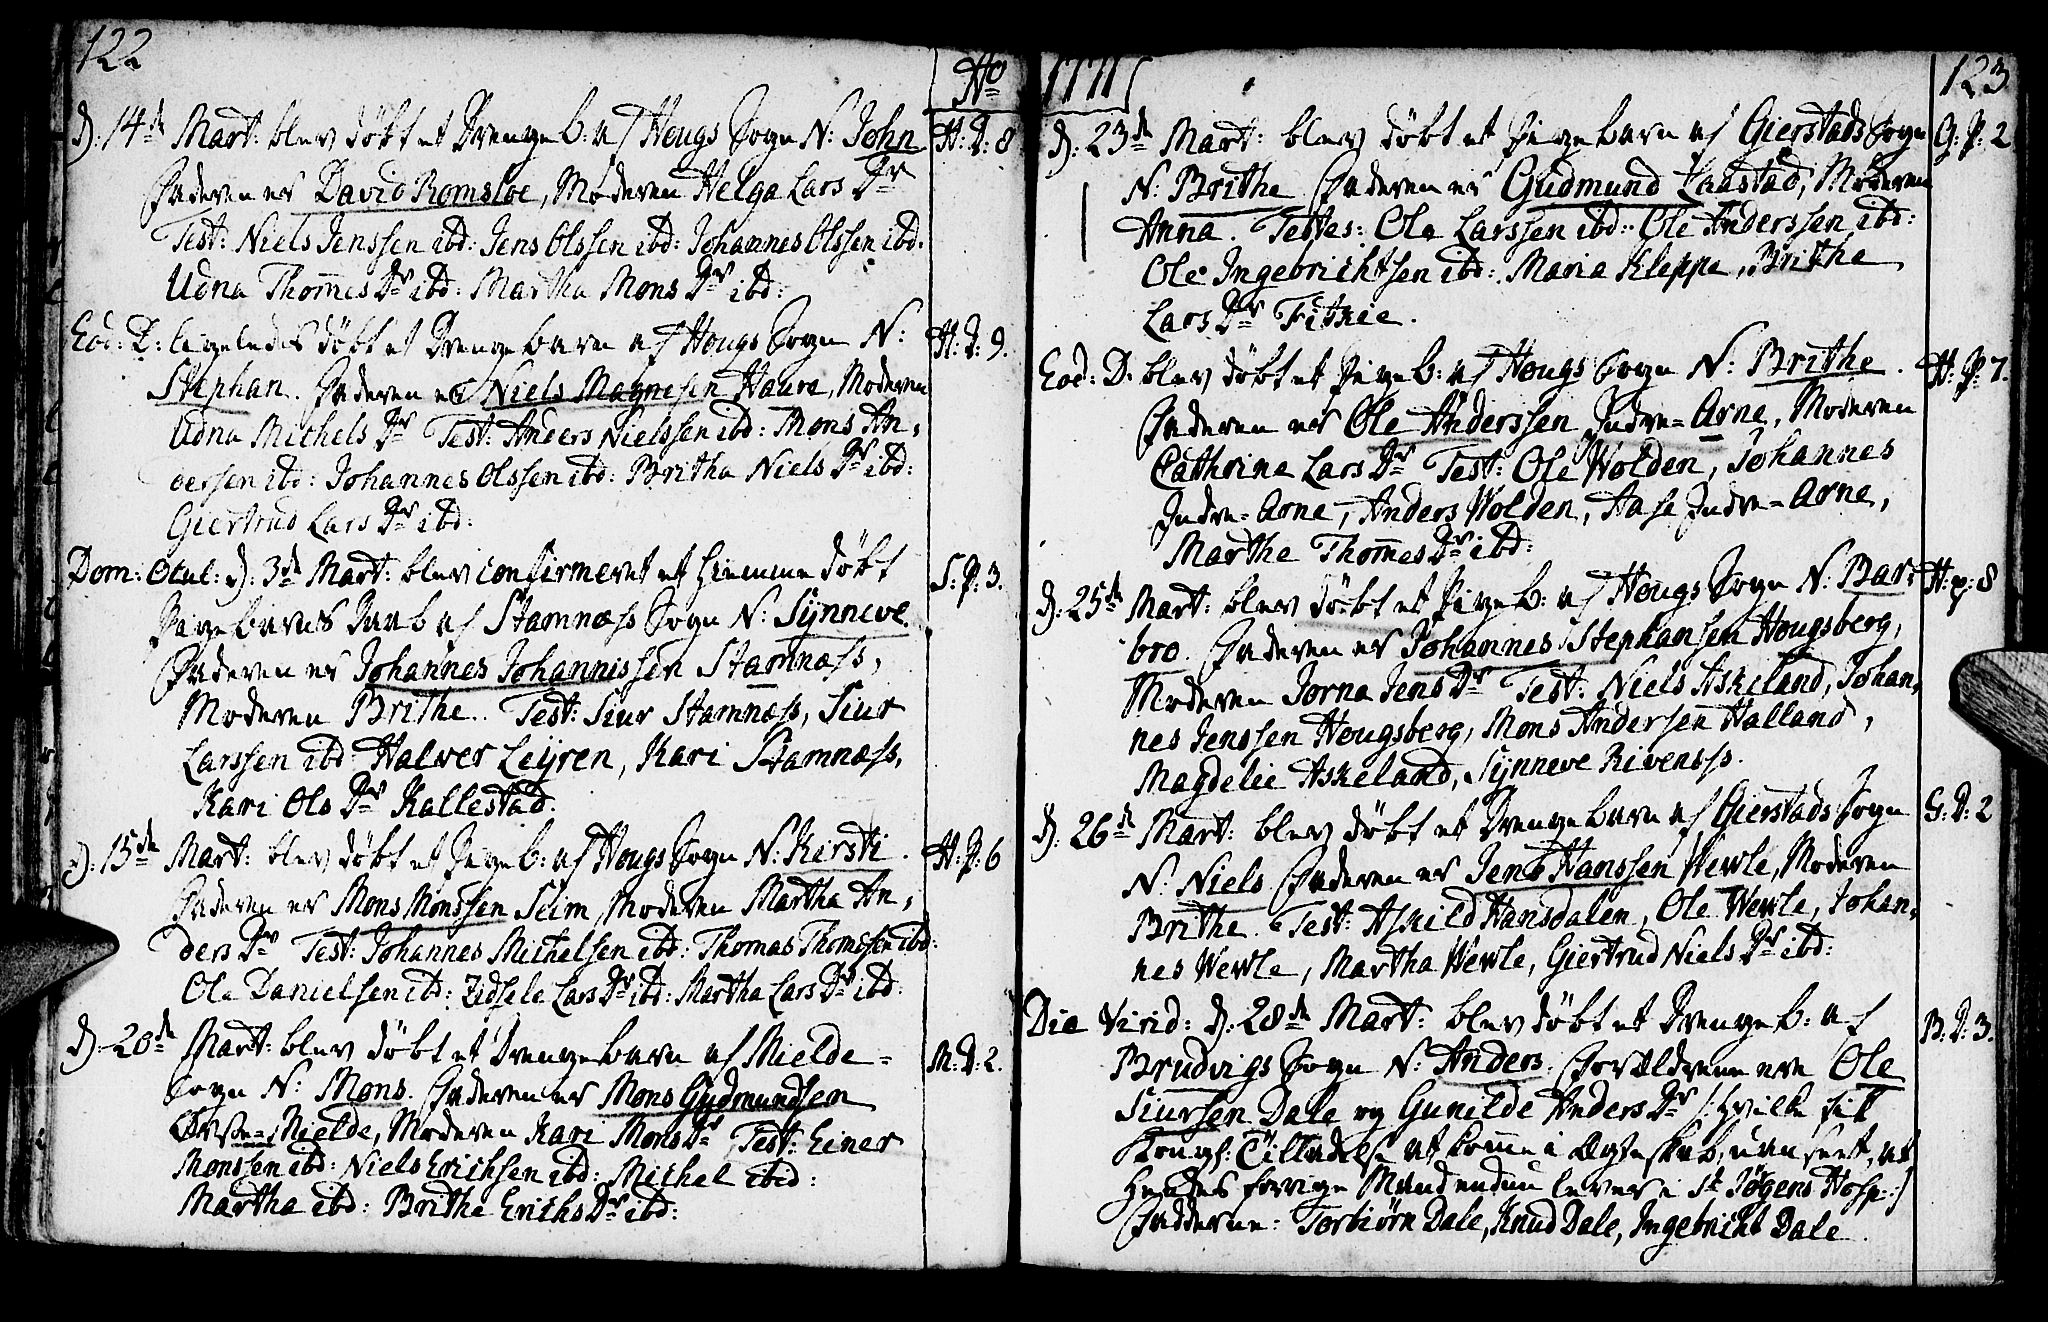 122
Ao
d: 14de Mart: blev døbt et Drengeb: af Hougs Sogn N: John
H: D: 8
Faderen er David Romsloe, Moderen Helga Lars Dr
Test: Niels Jenssen ibd: Jens Olssen ibd: Johannes Olssen ibd.
Udna Thom̄es Dr ibd: Martha Mons Dr ibd:
Eod: D: ligeledes døbt et Drengebarn af Hougs Sogn N:
H: D: 9.
Stephan. Faderen er Niels Magnesen Haure, Moderen
Udna Michels Dr Test: Anders Nielssen ibd: Mons An,
dersen ibd: Johannes Olssen ibd: Britha Niels Dr ibd:
Giertrud Lars Dr ibd:
Dom: Ocul: d: 3de Mart: blev confirmeret et hiemme døbt
S: P: 3.
Pigebarns Daab af Stamnæss Sogn N: Synneve
Faderen er Johannes Johannissen Stamnæss,
Moderen Brithe. Test: Siur Stamnæss, Siur
Larssen ibd Halver Leyren, Kari Stamnæss,
Kari Ols Dr Kallestad.
d: 15de Mart: blev døbt et Pigeb: af Hougs Sogn N: Kirsti.
H: P: 6
Faderen er Mons Monssen Seim, Moderen Martha An,
ders Dr Test: Johannes Michelsen ibd: Thomas Thomssen ibd:
Ole Danielsen ibd: Zidsele Lars Dr ibd: Martha Lars Dr ibd:
d: 20de Mart: blev døbt et Drengebarn af Mielde-
M: D: 2.
Sogn N: Mons. Faderen er Mons Gudmundsen
Mielde, Moderen Kari Mons Dr Test: Einer
Monssen ibd: Niels Erichsen ibd: Michel ibid:
Martha ibd: Brithe Erichs Dr ibd:
1771
123
d: 23de Mart: blev døbt et Pigebarn af Gierstads Sogn
G: P: 2
N: Brithe Faderen er Gudmund Laastad, Moderen
Anna. Testes: Ole Larssen ibd: Ole Anderssen ibd:
Ole Ingebrichtsen ibd: Maria Kleppe, Brithe
Lars Dr Fitzie.
Eod: D. blev døbt et Pigeb: af Hougs Sogn N: Brithe.
H: P: 7.
Faderen er Ole Anderssen Indre=Arne, Moderen
Cathrine Lars Dr Test: Ole Wolden, Johannes
Indre=Arne, Anders Wolden, Aase Indre=Arne,
Marthe Thom̄es Dr ibd:
d: 25de Mart: blev døbt et Pigeb: af Hougs Sogn N: Bar,
H: p: 8
bro. Faderen er Johannes Stephansen Hougsberg,
Moderen Jorna Jens Dr Test: Niels Askeland, Johan,
nes Jenssen Hougsberg, Mons Andersen Halland,
Magdelie Askeland, Synneve Rivenæss.
d: 26de Mart: blev døbt et Drengebarn af Gierstads Sogn
G: D: 2
N: Niels Faderen er Jens Hanssen Wevle, Moderen
Brithe. Test: Askild Hansdalen, Ole Wevle, Johan,
nes Wevle, Martha Wevle, Giertrud Niels Dr ibd:
Die Virid: d: 28de Mart: blev døbt et Drengeb: af
B: D: 3.
Brudvigs Sogn N: Anders. Forældrene ere Ole
Siursen Dale og Gunilde Anders Dr /: hvilke fik
Kongl: Tilladelse at kom̄e i Ægteskab, uanseet, at
hendes forrige Mand endnu lever i St Jørgens Hosp: /
Fadderne: Torbiørn Dale, Knud Dale, Ingebricht Dale.